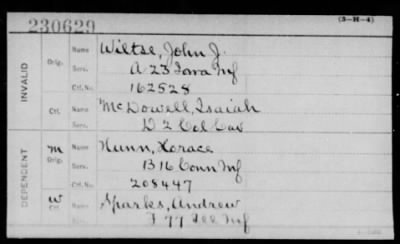 230629
(3-H-4)
INVALID
Orig. Name Wiltse, John J.
Serv. A 23 Iowa Inf
Ctf. No. 162528
Ctf. Name McDowell, Isaiah
Serv. D 2 Col Cav
DEPENDENT
M Orig. Name Nunn, Horace
Serv. B 16 Conn Inf
Ctf. No. 208447
W Ctf. Name Sparks, Andrew
Serv. F 77 Ill Inf